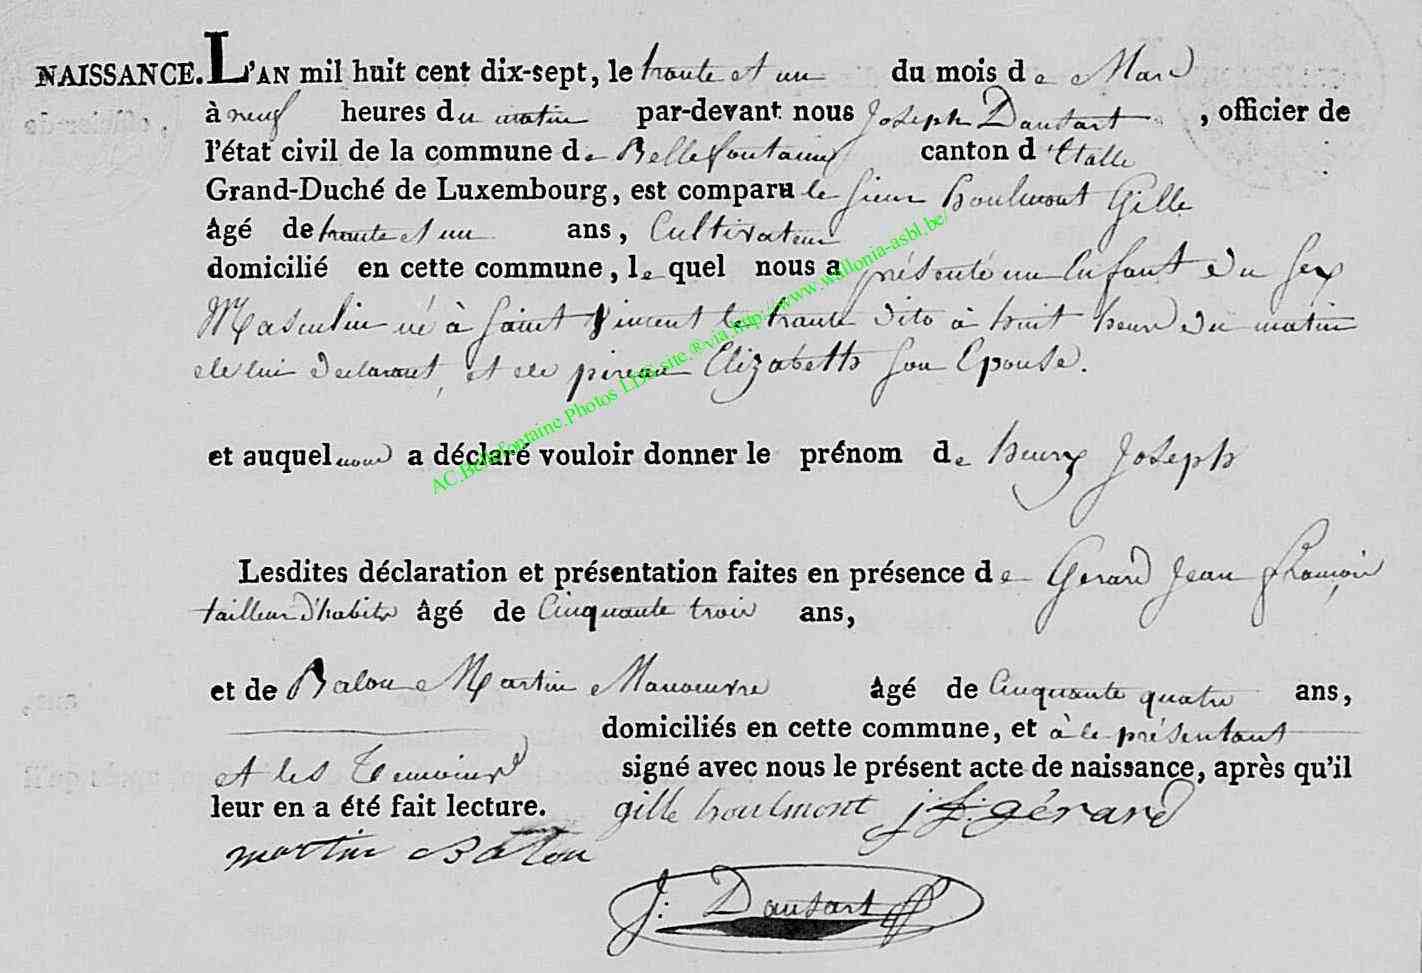 NAISSANCE. L'AN mil huit cent dix-sept, le trante et un du mois de Mars
à neuf heures du matin par-devant nous Joseph Dautart, officier de
l'état civil de la commune de Bellefontaine canton d'Etalle
Grand-Duché de Luxembourg, est comparu le sieur houlmont Gille
âgé de trante et un ans, Cultivateur
domicilié en cette commune, lequel nous a présenté un Enfant du sex
Masculin né à Saint Vincent le trante dito à huit heure du matin
de lui declarant, et de Elizabeth son Epouse.
et auquel nous a déclaré vouloir donner le prénom de henry Joseph
Lesdites déclaration et présentation faites en présence de Gerard Jean
tailleur d'habits âgé de Cinquante trois ans,
et de Balon Martin Manoeuvre âgé de Cinquante quatre ans,
domiciliés en cette commune, et à le présentant
et les Temoins signé avec nous le présent acte de naissance, après qu'il
leur en a été fait lecture. gille houlmont j f gérard
martin Balon
J: Dautart
AC.Bellefontaine.Photos LDH site ®via http://www.wallonia-asbl.be/